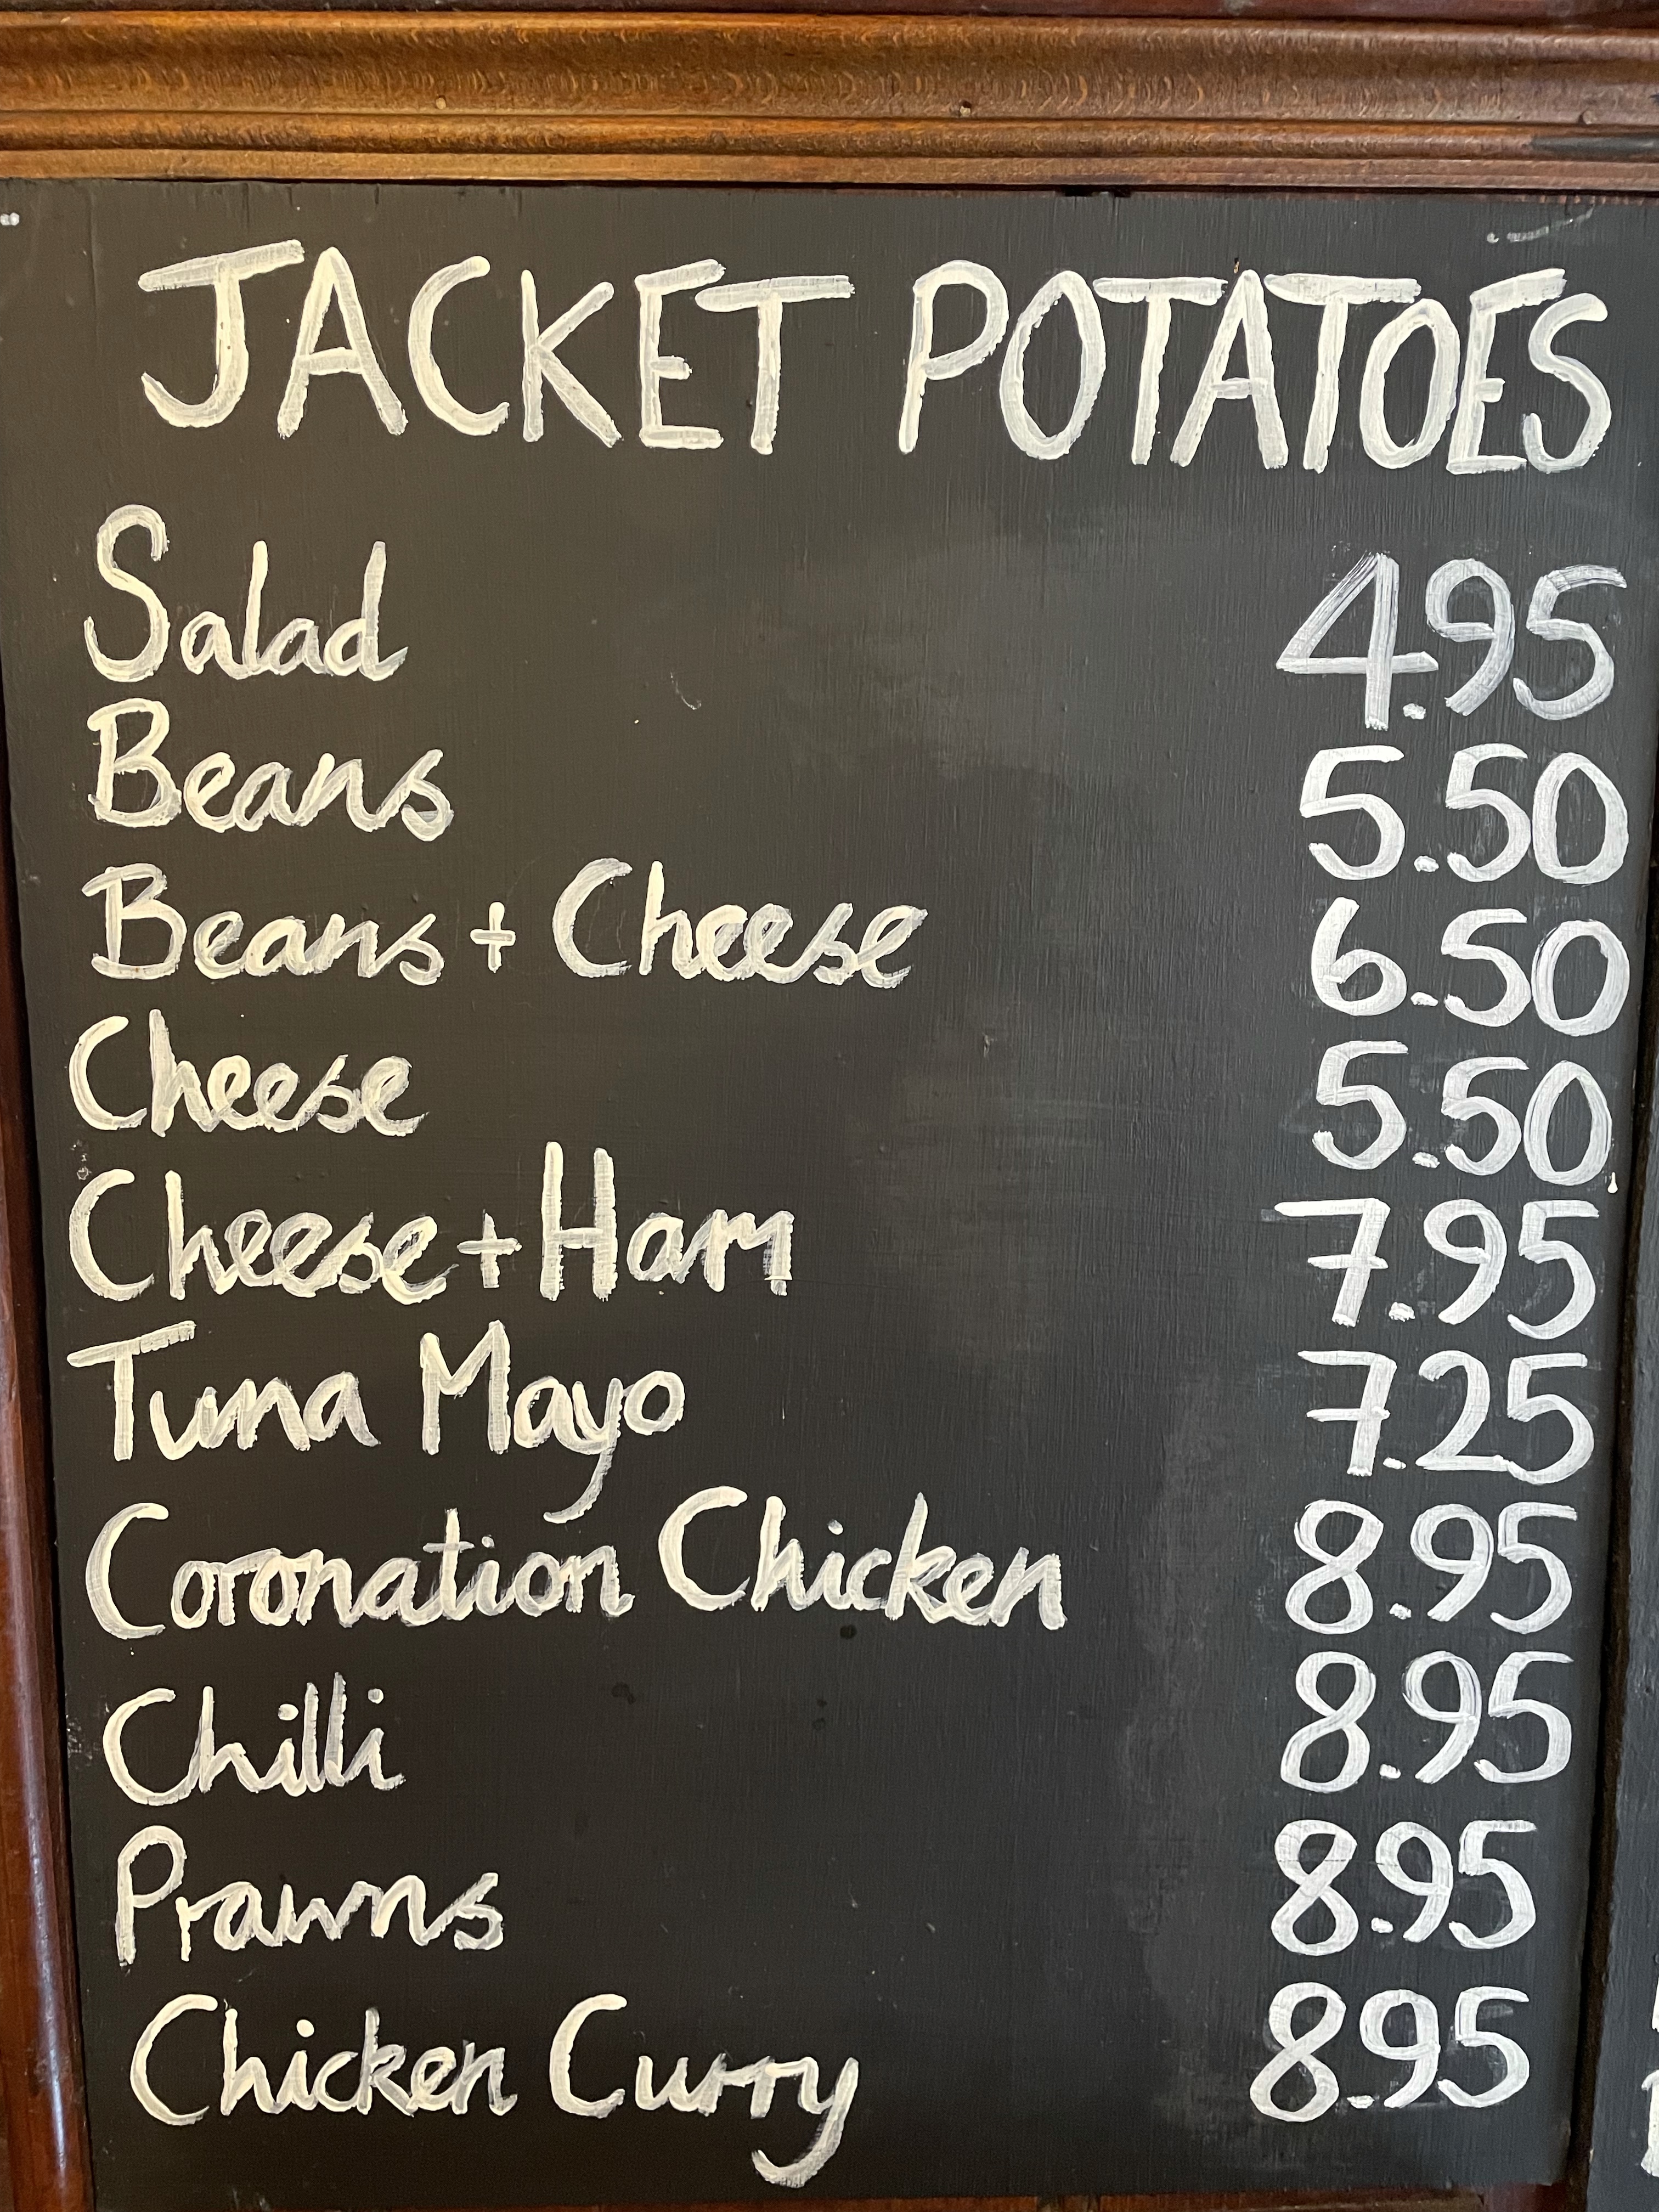 JACKET POTATOES
Salad 4.95
Beans 5.50
Beans + Cheese 6.50
Cheese 5.50
Cheese + Ham 7.95
Tuna Mayo 7.25
Coronation Chicken 8.95
Chilli 8.95
Prawns 8.95
Chicken Curry 8.95